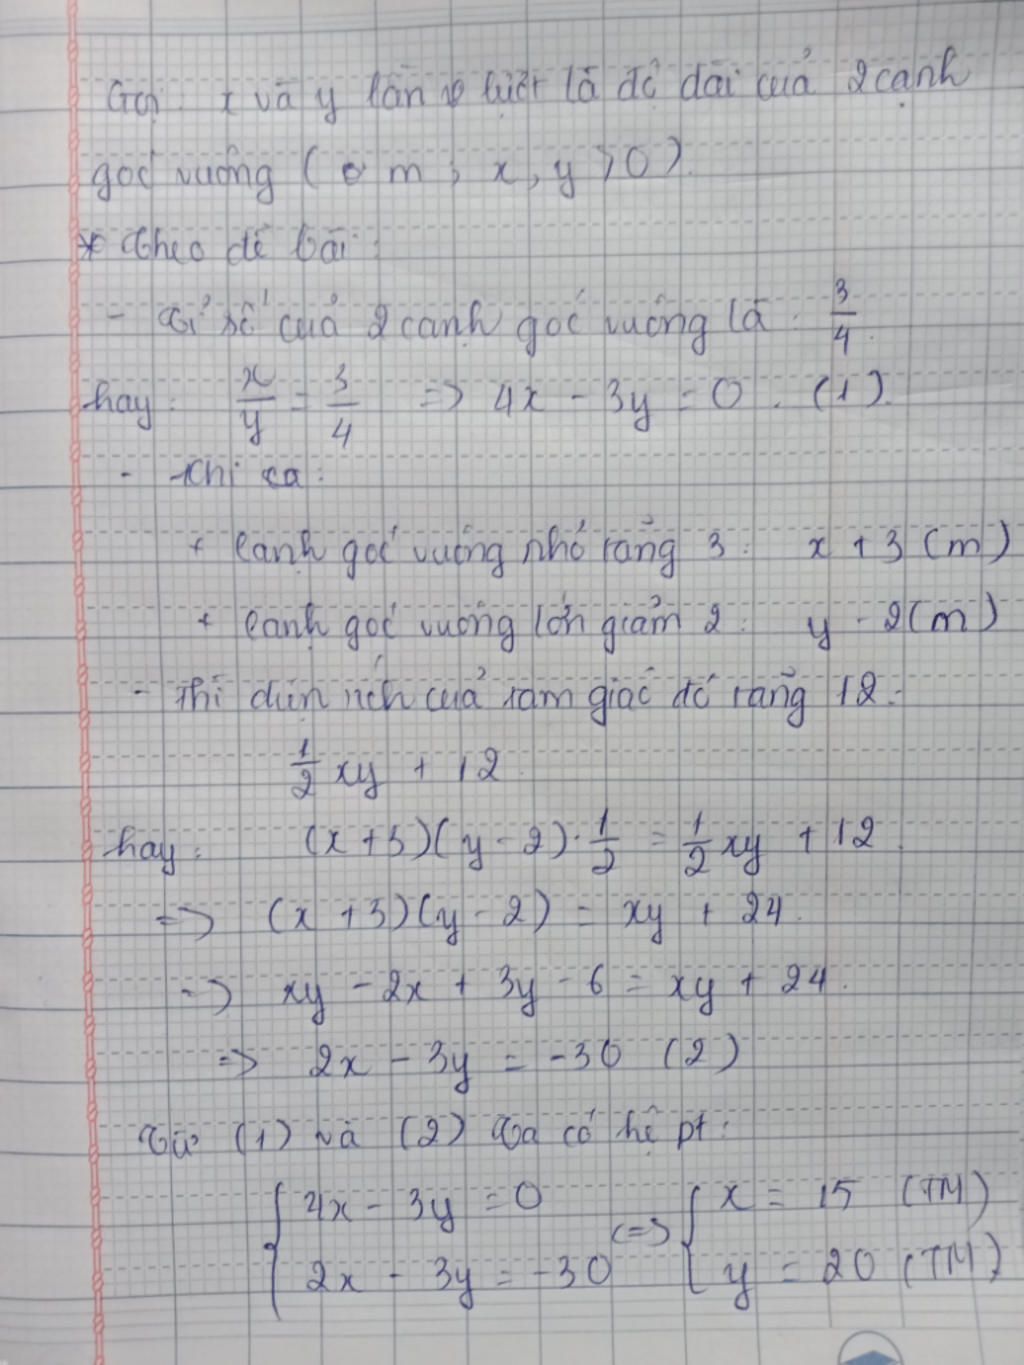 Gọi: x và y lần lượt là độ dài của 2 cạnh
góc vuông ( m, x, y > 0).
* Theo đề bài:
- Tỉ số của 2 cạnh góc vuông là: 3/4.
hay: x/y = 3/4 => 4x - 3y = 0. (1).
- Khi ta:
+ Cạnh góc vuông nhỏ tăng 3: x + 3 (m)
+ Cạnh góc vuông lớn giảm 2: y - 2 (m)
- Thì diện tích của tam giác đó tăng 12:
1/2 xy + 12.
hay: (x + 3)(y - 2) · 1/2 = 1/2 xy + 12.
=> (x + 3)(y - 2) = xy + 24.
=> xy - 2x + 3y - 6 = xy + 24.
=> 2x - 3y = -30 (2)
Từ (1) và (2) Ta có hệ pt:
{ 4x - 3y = 0 <=> { x = 15 (TM)
{ 2x - 3y = -30 { y = 20 (TM)